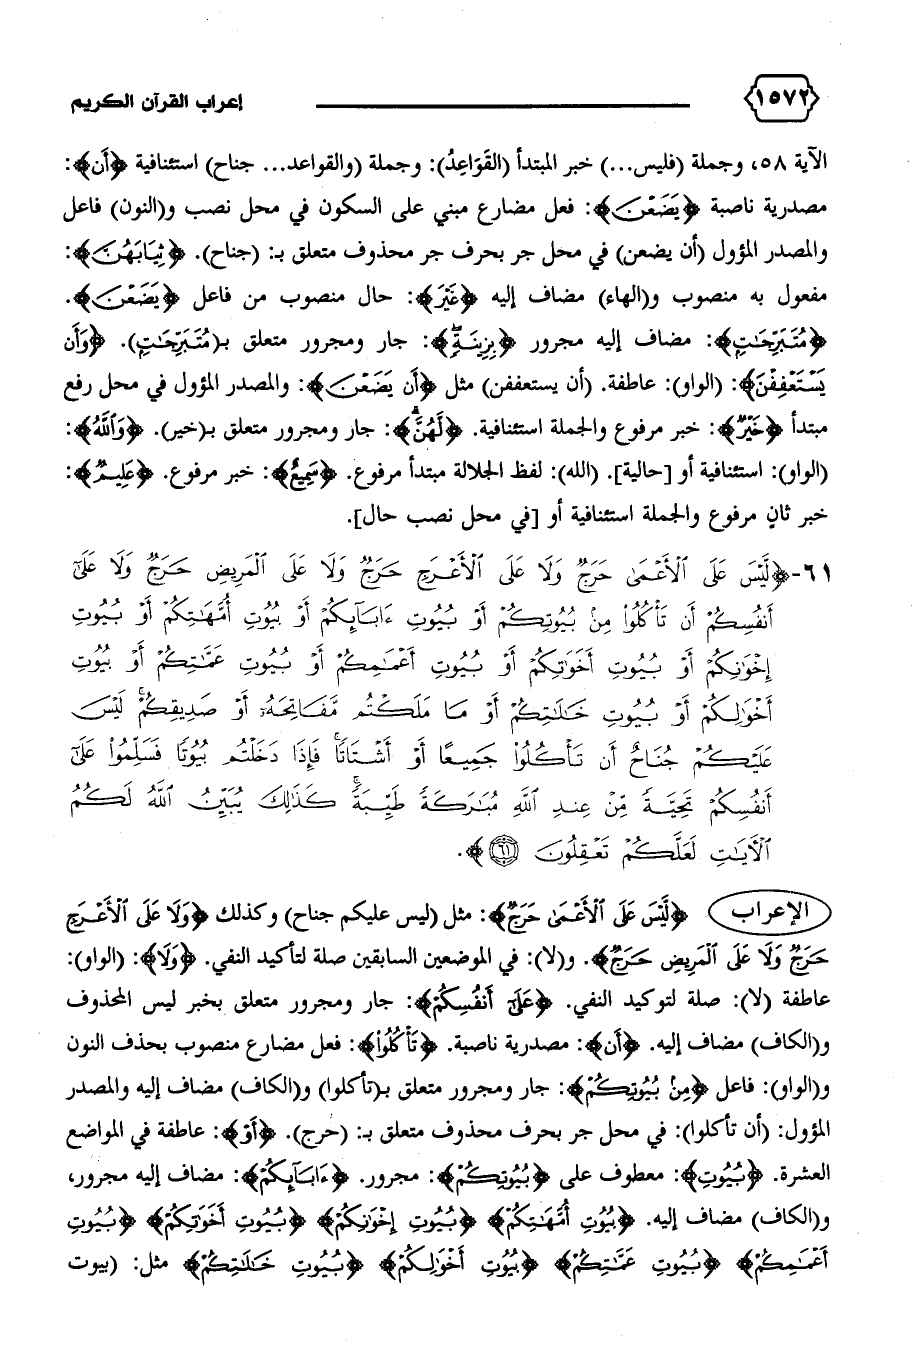 ١٥٧٢ إعراب القرآن الكريم
الآية ٥٨، وجملة (فليس...) خبر المبتدأ (القَوَاعِدُ): وجملة (والقواعد... جناح) استئنافية ﴿أَن﴾:
مصدرية ناصبة ﴿يَضَعْنَ﴾: فعل مضارع مبني على السكون في محل نصب و(النون) فاعل
والمصدر المؤول (أن يضعن) في محل جر بحرف جر محذوف متعلق بـ: (جناح). ﴿ثِيَابَهُنَّ﴾:
مفعول به منصوب و(الهاء) مضاف إليه ﴿غَيْرَ﴾: حال منصوب من فاعل ﴿يَضَعْنَ﴾.
﴿مُتَبَرِّجَٰتٍ﴾: مضاف إليه مجرور ﴿بِزِينَةٍ﴾: جار ومجرور متعلق بـ(مُتَبَرِّجَٰتٍ). ﴿وَأَن
يَسْتَعْفِفْنَ﴾: (الواو): عاطفة. (أن يستعففن) مثل ﴿أَن يَضَعْنَ﴾: والمصدر المؤول في محل رفع
مبتدأ ﴿خَيْرٌ﴾: خبر مرفوع والجملة استئنافية. ﴿لَّهُنَّ﴾: جار ومجرور متعلق بـ(خير). ﴿وَاللَّهُ﴾:
(الواو): استئنافية أو [حالية]. (الله): لفظ الجلالة مبتدأ مرفوع. ﴿سَمِيعٌ﴾: خبر مرفوع. ﴿عَلِيمٌ﴾:
خبر ثانٍ مرفوع والجملة استئنافية أو [في محل نصب حال].
٦١-﴿لَّيْسَ عَلَى ٱلْأَعْمَىٰ حَرَجٌ وَلَا عَلَى ٱلْأَعْرَجِ حَرَجٌ وَلَا عَلَى ٱلْمَرِيضِ حَرَجٌ وَلَا عَلَىٰٓ
أَنفُسِكُمْ أَن تَأْكُلُوا۟ مِنۢ بُيُوتِكُمْ أَوْ بُيُوتِ ءَابَآئِكُمْ أَوْ بُيُوتِ أُمَّهَٰتِكُمْ أَوْ بُيُوتِ
إِخْوَٰنِكُمْ أَوْ بُيُوتِ أَخَوَٰتِكُمْ أَوْ بُيُوتِ أَعْمَٰمِكُمْ أَوْ بُيُوتِ عَمَّٰتِكُمْ أَوْ بُيُوتِ
أَخْوَٰلِكُمْ أَوْ بُيُوتِ خَٰلَٰتِكُمْ أَوْ مَا مَلَكْتُم مَّفَاتِحَهُۥٓ أَوْ صَدِيقِكُمْ ۚ لَيْسَ
عَلَيْكُمْ جُنَاحٌ أَن تَأْكُلُوا۟ جَمِيعًا أَوْ أَشْتَاتًا ۚ فَإِذَا دَخَلْتُم بُيُوتًا فَسَلِّمُوا۟ عَلَىٰٓ
أَنفُسِكُمْ تَحِيَّةً مِّنْ عِندِ ٱللَّهِ مُبَٰرَكَةً طَيِّبَةً ۚ كَذَٰلِكَ يُبَيِّنُ ٱللَّهُ لَكُمُ
ٱلْآيَٰتِ لَعَلَّكُمْ تَعْقِلُونَ ٦١﴾.
الإعراب ﴿لَّيْسَ عَلَى ٱلْأَعْمَىٰ حَرَجٌ﴾: مثل (ليس عليكم جناح) وكذلك ﴿وَلَا عَلَى ٱلْأَعْرَجِ
حَرَجٌ وَلَا عَلَى ٱلْمَرِيضِ حَرَجٌ﴾. و(لا): في الموضعين السابقين صلة لتأكيد النفي. ﴿وَلَا﴾: (الواو):
عاطفة (لا): صلة لتوكيد النفي. ﴿عَلَىٰٓ أَنفُسِكُمْ﴾: جار ومجرور متعلق بخبر ليس المحذوف
و(الكاف) مضاف إليه. ﴿أَن﴾: مصدرية ناصبة. ﴿تَأْكُلُوا۟﴾: فعل مضارع منصوب بحذف النون
و(الواو): فاعل ﴿مِنۢ بُيُوتِكُمْ﴾: جار ومجرور متعلق بـ(تأكلوا) و(الكاف) مضاف إليه والمصدر
المؤول: (أن تأكلوا): في محل جر بحرف محذوف متعلق بـ: (حرج). ﴿أَوْ﴾: عاطفة في المواضع
العشرة. ﴿بُيُوتِ﴾: معطوف على ﴿بُيُوتِكُمْ﴾: مجرور. ﴿ءَابَآئِكُمْ﴾: مضاف إليه مجرور،
و(الكاف) مضاف إليه. ﴿بُيُوتِ أُمَّهَٰتِكُمْ﴾ ﴿بُيُوتِ إِخْوَٰنِكُمْ﴾ ﴿بُيُوتِ أَخَوَٰتِكُمْ﴾ ﴿بُيُوتِ
أَعْمَٰمِكُمْ﴾ ﴿بُيُوتِ عَمَّٰتِكُمْ﴾ ﴿بُيُوتِ أَخْوَٰلِكُمْ﴾ ﴿بُيُوتِ خَٰلَٰتِكُمْ﴾ مثل: (بيوت